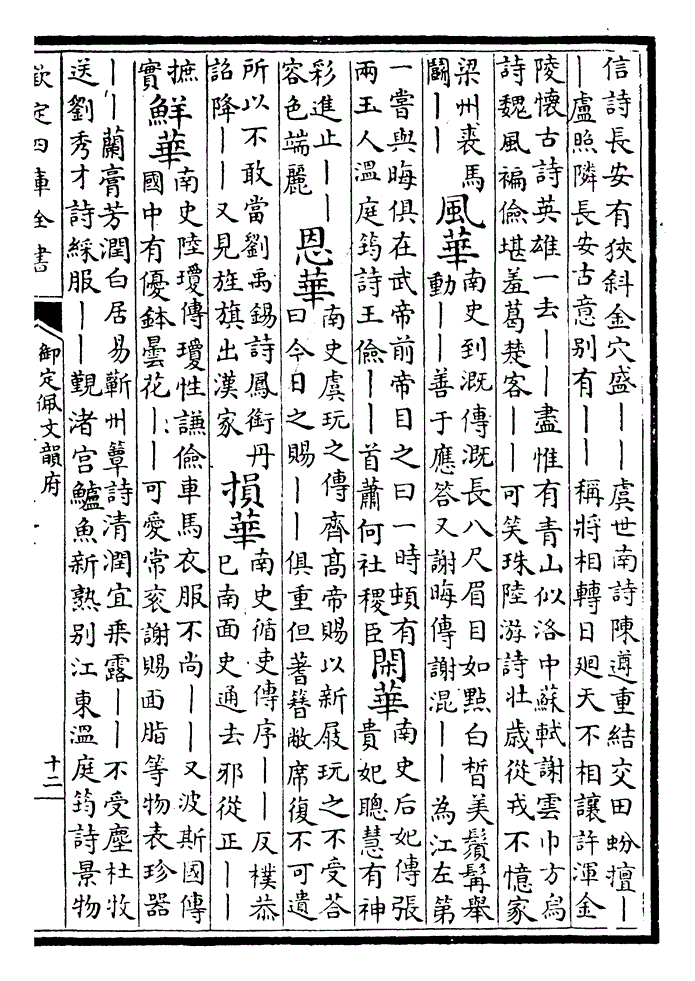 信詩長安有狹斜金穴盛——虞世南詩陳遵重結交田蚡擅—
—盧照隣長安古意别有——稱將相轉日廻天不相讓許渾金
陵懷古詩英雄一去——盡惟有青山似洛中蘇軾謝雲巾方烏
詩魏風褊儉堪羞葛楚客——可笑珠陸游詩壯歳從戎不憶家
梁州裘馬
鬭——
風華
南史到溉傳溉長八尺眉目如點白皙美鬚髯舉
動——善于應答又謝晦傳謝混——為江左第
一嘗與晦俱在武帝前帝目之曰一時頓有
兩玉人溫庭筠詩王儉——首蕭何社稷臣
閑華
南史后妃傳張
貴妃聰慧有神
彩進止——
容色端麗
恩華
南史虞玩之傳齊髙帝賜以新屐玩之不受荅
曰今日之賜——俱重但蓍簪敝席復不可遺
所以不敢當劉禹錫詩鳳銜丹
詔降——又見旌旗出漢家
損華
南史循吏傳序——反樸恭
已南面史通去邪從正——
摭
實
鮮華
南史陸瓊傳瓊性謙儉車馬衣服不尚——又波斯國傳
國中有優鉢曇花——可愛常衮謝賜面脂等物表珍器
——蘭膏芳潤白居易蘄州簟詩清潤宜乗露——不受塵杜牧
送劉秀才詩綵服——覲渚宫鱸魚新熟别江東溫庭筠詩景物
欽定四庫全書
御定佩文韻府
十二